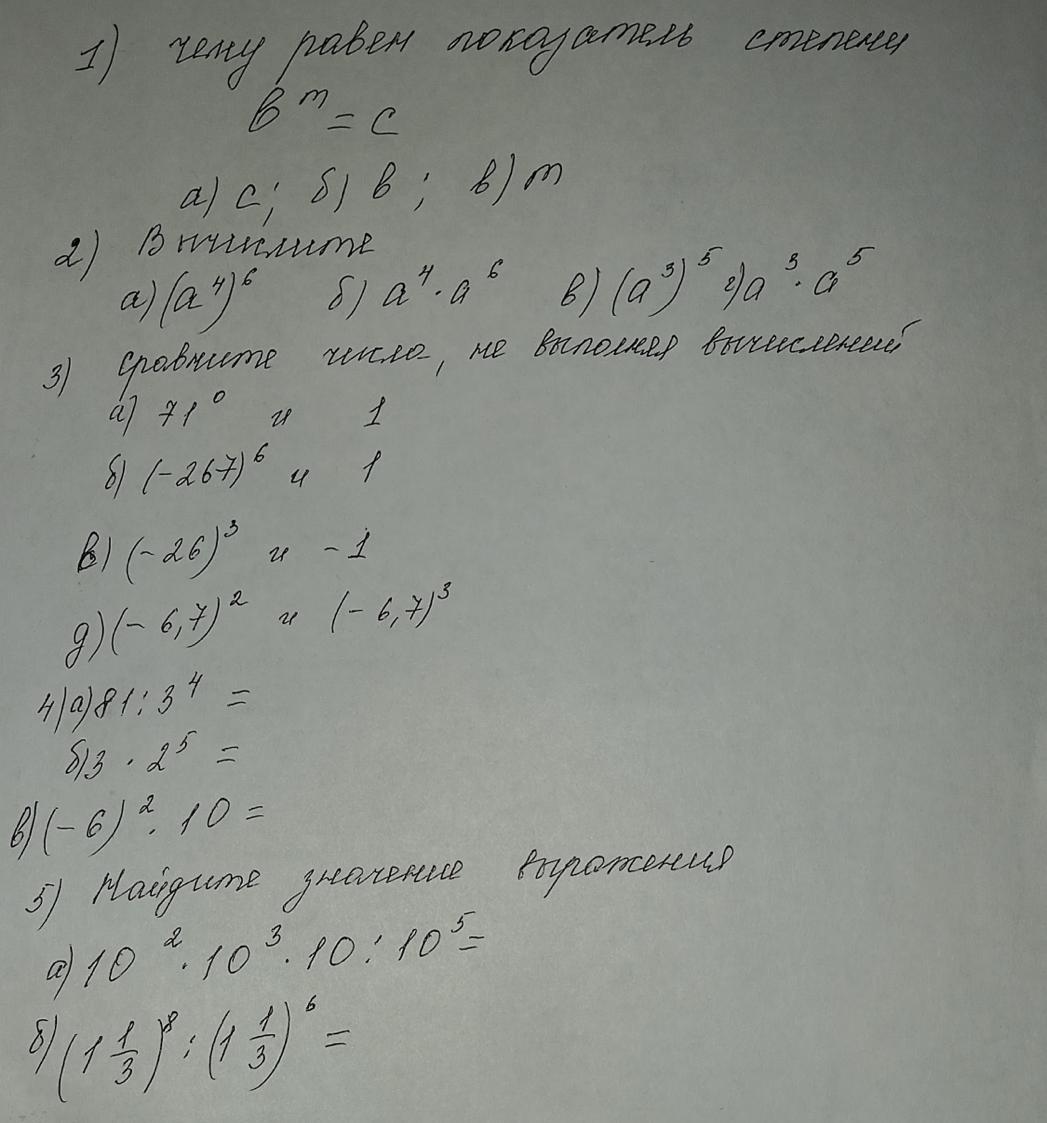 1) чему равен показатель степени
в^m = с
а) с; б) в; в) m
2) Вычислите
а) (a^4)^6 б) a^4 · a^6 в) (a^3)^5 г) a^3 · a^5
3) сравните числа, не выполняя вычислений
а) 71^0 и 1
б) (-267)^6 и 1
в) (-26)^3 и -1
д) (-6,7)^2 и (-6,7)^3
4) а) 81 : 3^4 =
б) 3 · 2^5 =
в) (-6)^2 · 10 =
5) Найдите значение выражения
а) 10^2 · 10^3 · 10 : 10^5 =
б) (1 1/3)^8 : (1 1/3)^6 =